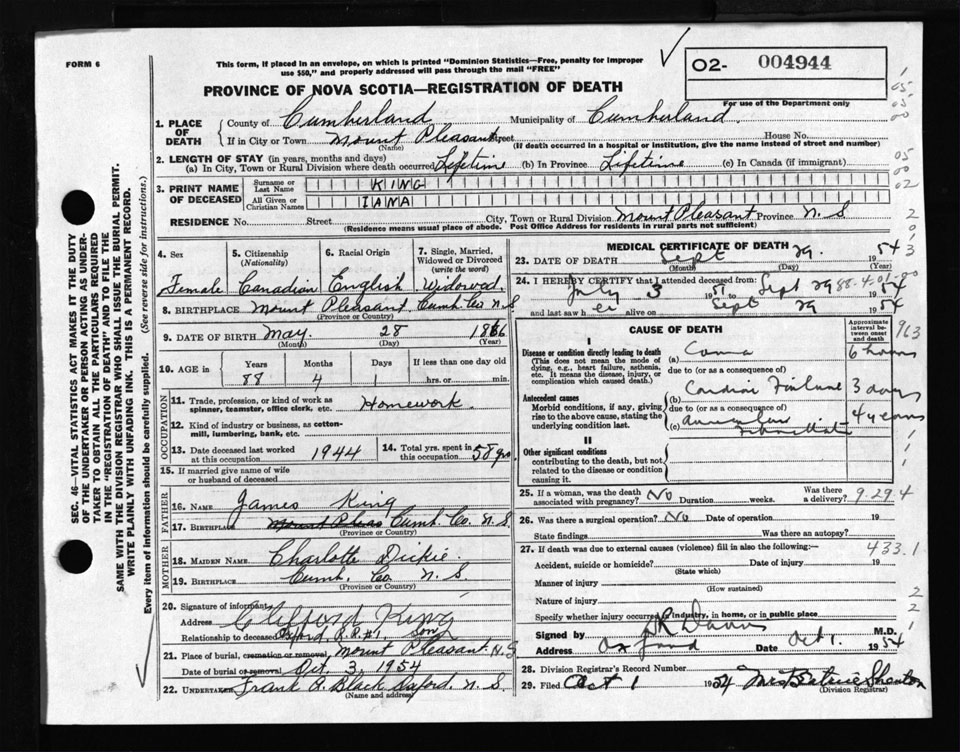 FORM 6
This form, if placed in an envelope, on which is printed "Dominion Statistics—Free, penalty for improper
use $50," and properly addressed will pass through the mail "FREE"
O2- 004944
For use of the Department only
PROVINCE OF NOVA SCOTIA—REGISTRATION OF DEATH
1. PLACE OF DEATH
County of Cumberland Municipality of Cumberland.
If in City or Town Mount Pleasant Street House No.
(Name) (If death occurred in a hospital or institution, give the name instead of street and number)
2. LENGTH OF STAY (in years, months and days)
(a) In City, Town or Rural Division where death occurred Lifetime (b) In Province Lifetime (c) In Canada (if immigrant)
3. PRINT NAME OF DECEASED
Surname or Last Name KING
All Given or Christian Names IANA
RESIDENCE No. Street City, Town or Rural Division Mount Pleasant Province N. S
(Residence means usual place of abode. Post Office Address for residents in rural parts not sufficient)
4. Sex
Female
5. Citizenship
(Nationality)
Canadian
6. Racial Origin
English
7. Single, Married,
Widowed or Divorced
(write the word)
Widowed
8. BIRTHPLACE Mount Pleasant Cumb. Co N. S
(Province or Country)
9. DATE OF BIRTH May 28 1866
(Month) (Day) (Year)
10. AGE in
Years Months Days If less than one day old
88 4 1 hrs. or min.
OCCUPATION
11. Trade, profession, or kind of work as
spinner, teamster, office clerk, etc. Homework.
12. Kind of industry or business, as cotton-
mill, lumbering, bank, etc.
13. Date deceased last worked
at this occupation 1944
14. Total yrs. spent in
this occupation 58 yrs
15. If married give name of wife
or husband of deceased
FATHER
16. NAME James King
17. BIRTHPLACE Mount Pleas Cumb. Co. N. S.
(Province or Country)
MOTHER
18. MAIDEN NAME Charlotte Dickie.
19. BIRTHPLACE Cumb. Co. N. S.
(Province or Country)
20. Signature of informant Clifford King
Address Oxford, R.R.#1.
Relationship to deceased Son
21. Place of burial, cremation or removal, Mount Pleasant N. S
Date of burial or removal Oct. 3, 1954
22. UNDERTAKER Frank A. Black Oxford. N. S.
(Name and address)
MEDICAL CERTIFICATE OF DEATH
23. DATE OF DEATH Sept 29. 1954
(Month) (Day) (Year)
24. I HEREBY CERTIFY that I attended deceased from:
July 3 1951 Sept 29 1954
and last saw her alive on Sept 29 1954
88.4.01.
CAUSE OF DEATH
Approximate interval between onset and death
I
Disease or condition directly leading to death
(This does not mean the mode of
dying, e.g., heart failure, asthenia,
etc. It means the disease, injury, or
complication which caused death.)
(a) Coma 6 hours
due to (or as a consequence of)
Antecedent causes
Morbid conditions, if any, giving
rise to the above cause, stating the
underlying condition last.
(b) Cardiac Failure 3 days
due to (or as a consequence of)
(c) Auricular Fibrillation 4 years
II
Other significant conditions
contributing to the death, but not
related to the disease or condition
causing it.
25. If a woman, was the death
associated with pregnancy? No Duration weeks. Was there
a delivery? 9.29.4
26. Was there a surgical operation? No Date of operation 19
State findings Was there an autopsy?
27. If death was due to external causes (violence) fill in also the following:— 433.1
Accident, suicide or homicide? Date of injury 19
(State which)
Manner of injury
(How sustained)
Nature of injury
Specify whether injury occurred in industry, in home, or in public place
Signed by M.D.
Address Oxford Date Oct 1. 1954
28. Division Registrar's Record Number
29. Filed Oct 1 1954 Mrs Beatrice Shenton
(Division Registrar)
SEC. 46—VITAL STATISTICS ACT MAKES IT THE DUTY
OF THE UNDERTAKER OR PERSON ACTING AS UNDER-
TAKER TO OBTAIN ALL THE PARTICULARS REQUIRED
IN THE "REGISTRATION OF DEATH" AND TO FILE THE
SAME WITH THE DIVISION REGISTRAR WHO SHALL ISSUE THE BURIAL PERMIT.
WRITE PLAINLY WITH UNFADING INK. THIS IS A PERMANENT RECORD.
Every item of information should be carefully supplied. (See reverse side for instructions.)